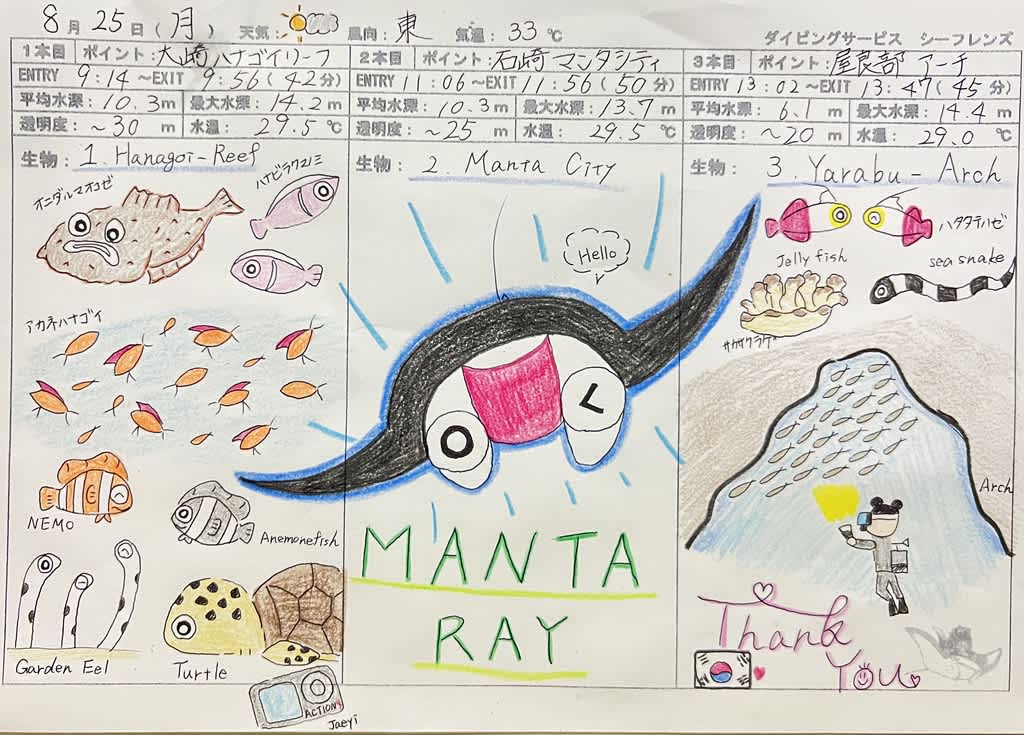 8月25日(月) 天気: 風向:東 気温:33℃
ダイビングサービス シーフレンズ
1本目 ポイント:大崎ハナゴイリーフ
ENTRY 9:14~EXIT 9:56(42分)
平均水深:10.3m 最大水深:14.2m
透明度:~30m 水温:29.5℃
生物:1. Hanagoi-Reef
オニダルマオコゼ
ハナビラクマノミ
アカネハナゴイ
NEMO
Anemonefish
Garden Eel
Turtle
ACTION
Jaeyi
2本目 ポイント:石崎マンタシティ
ENTRY 11:06~EXIT 11:56(50分)
平均水深:10.3m 最大水深:13.7m
透明度:~25m 水温:29.5℃
生物:2. Manta City
Hello
MANTA
RAY
3本目 ポイント:屋良部アーチ
ENTRY 13:02~EXIT 13:47(45分)
平均水深:6.1m 最大水深:14.4m
透明度:~20m 水温:29.0℃
生物:3. Yarabu-Arch
ハタタテハゼ
Jelly fish
sea snake
Arch
Thank
You